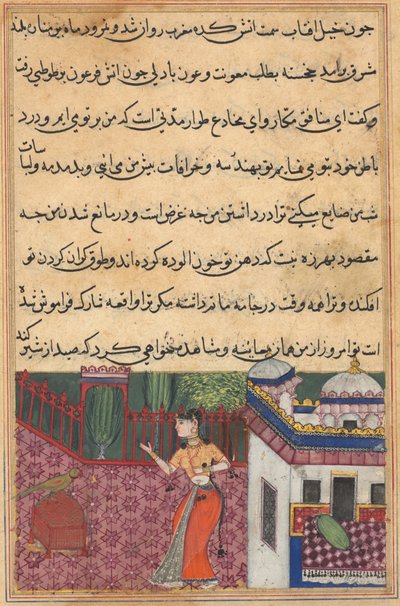 چون خلیل افتاب سمت اتش کده مغرب رواز شد و نمرود ماه بوستان بلند
مشرق برامد خجسته بطلب معونت و عون با دلی چون اتش فرعون بر طوطی رفت
و کفت ای منافق مکار و ای مخادع طرار مدتی است که من بر تو می ایم و درد
باطن خود بتو می نمایم تو بهندسه و خرافات پیش من می ائی و بدمدمه ولباسات
شب من ضایع میکنی ترا در داشتن من چه غرض است و در مانع شدن من چه
مقصود بهرزه نیست که دهن تو خون الوده کرده اند و طوق کران کردن تو
افکنده و ترا همه وقت در جامه ماتم داشته مکر ترا واقعه تارک فراموش شده
است تو امروز از من هماز معاینه و مشاهده نخواهی کرد که صیدار شیر کند